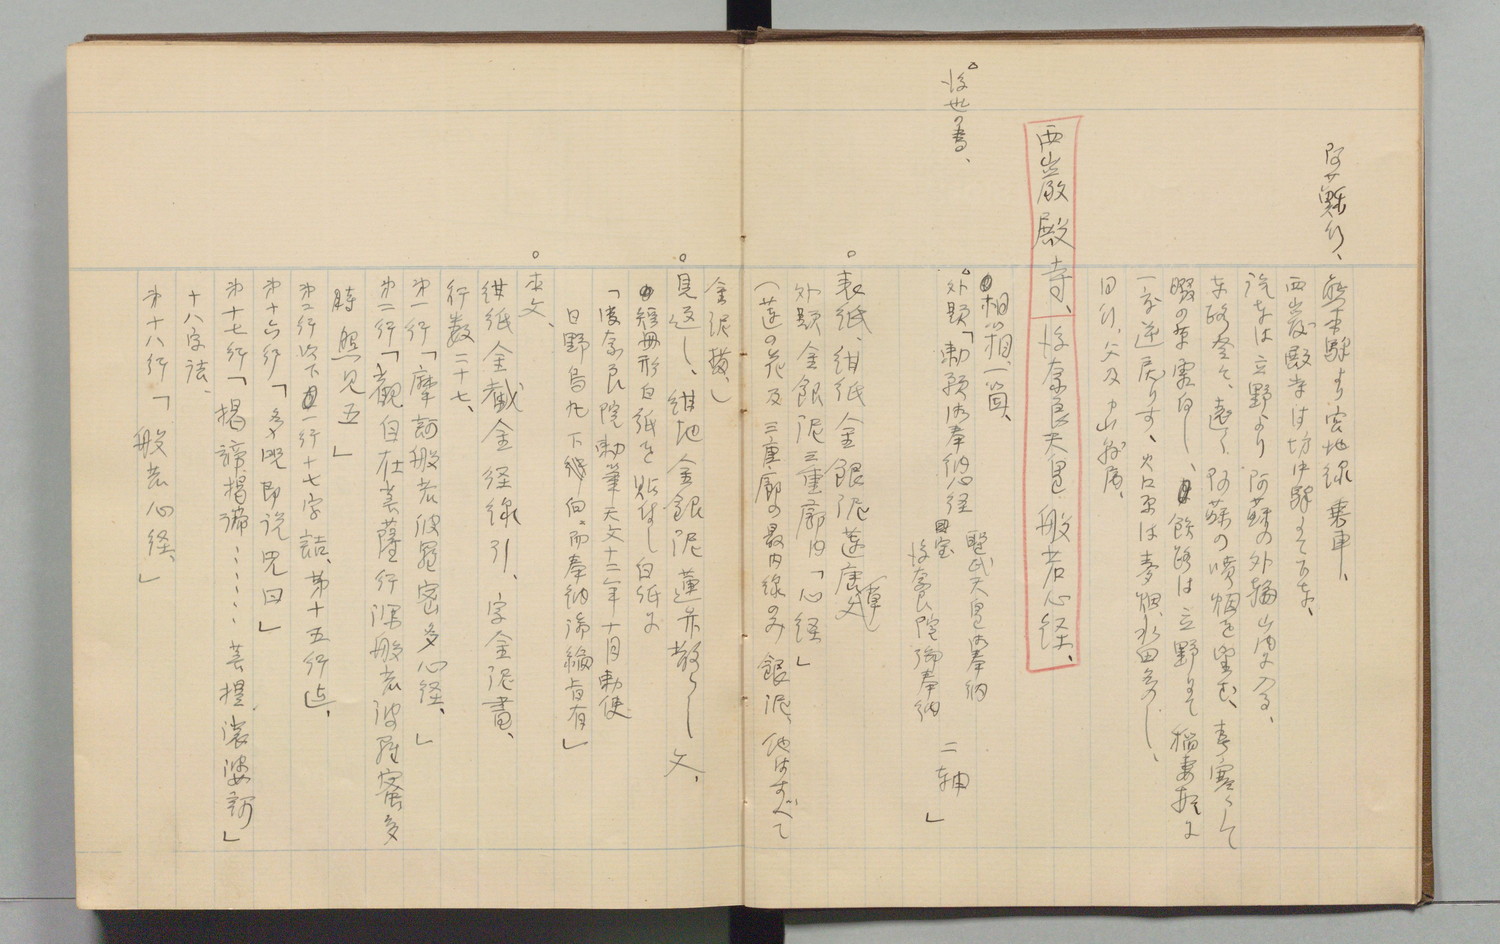 阿蘇行、
熊本駅より宮地線乗車、
西巌殿寺は坊中駅にて下車、
汽車は立野より阿蘇の外輪山内に入る、
車路登て、遠く阿蘇の噴烟を望む、春寒くして
畷の草霜白し、鉄路は立野にて稲妻形に
一度逆戻りす、火口原は麦畑、水田多し、
同行、父及中山移房、
西巌殿寺、後奈良天皇般若心経、
相の箱、一箇、
外題「勅願御奉納心経 聖武天皇御奉納
宸 後奈良院御奉納 二軸」
後世の書、
表紙、紺紙金銀泥蓮唐草文
外題金銀泥三重廓内「心経」
(蓮の花及三重廓の最内線のみ銀泥、他はすべて
金泥描、)
見返し、紺地金銀泥蓮弁散らし文、
短冊形白紙を貼付し白紙に
「後奈良院勅筆天文十二年十月勅使
日野烏丸下向、而奉納論綸旨有」
本文、
紺紙金截金経線引、字金泥書、
行数二十七、
第一行「摩訶般若波羅密多心経、」
第二行「観自在菩薩行深般若波羅蜜多
時照見五」
第二行以下一行十七字詰、第十五行迄、
第十六行「多呪即説咒曰」
第十七行「揭諦揭諦……菩提薩婆訶」
十八字法、
第十八行「般若心経、」